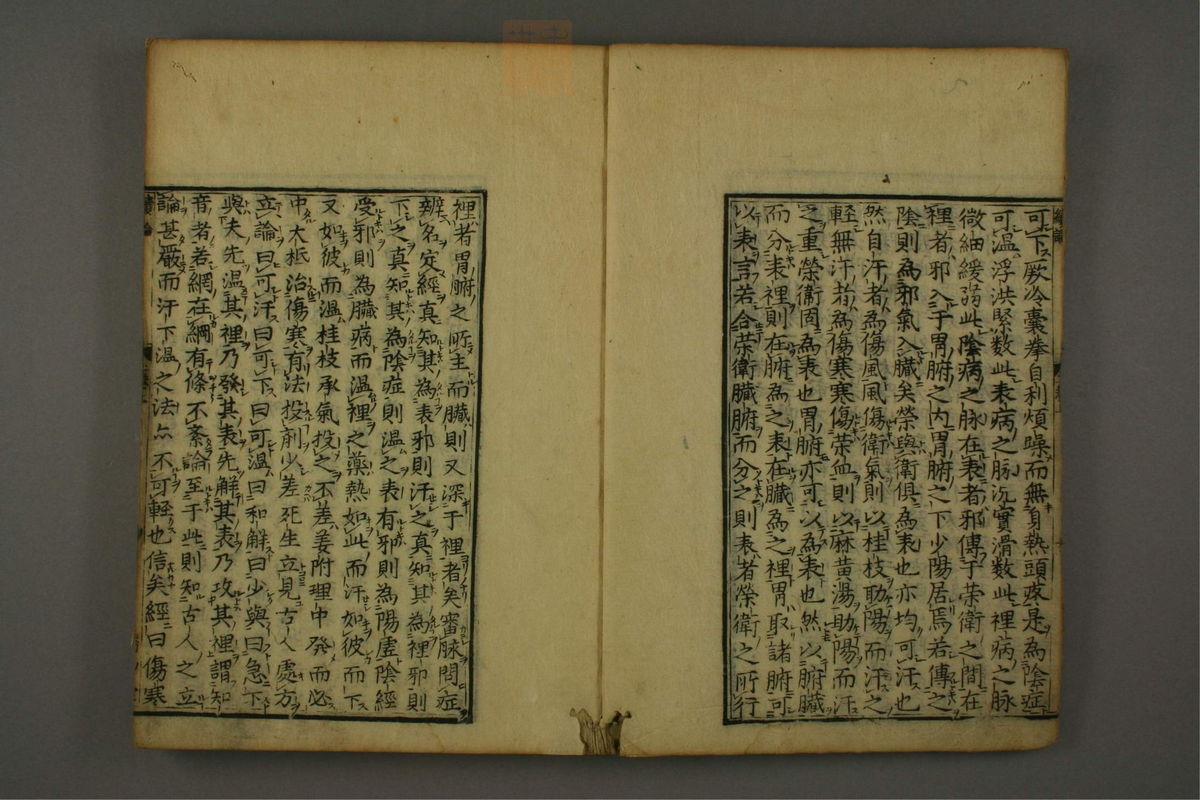 可下厥冷囊拳自利煩躁而無身熱頭疼是為陰症
可溫浮洪緊数此表病之脉沉實滑数此裡病之脉
微細緩弱此陰病之脉在表者邪傳于荣衛之間在
裡者邪入于胃腑之内胃腑之下少陽居焉若傳之
陰則為邪氣入臟矣榮與衛俱為表也亦均可汗也
然自汗者為傷風風傷衛氣則以桂枝助陽而汗之
軽無汗者為傷寒寒傷荣血則以麻黄湯助陽而汗
之重榮衛固為表也胃腑亦可以為表也然以腑臟
而分表裡則在腑為之表在臟為之裡胃取諸腑可
以表言若合荣衛臟腑而分之則表者榮衛之所行
裡者胃腑之所主而臟則又深于裡者矣審脉問症
辨名定經真知其為表邪則汗之真知其為裡邪則
下之真知其為陰症則温之表有邪則為陽虚陰經
受邪則為臟病而温裡之藥熱如此而汗如彼而下
又如彼而温桂枝承氣投之不差姜附理中發而必
中大柢治傷寒有法投剤少差死生立見古人處方
立論曰可汗曰可下曰可温曰和解曰少與曰急下
與夫先温其裡乃發其表先解其表乃攻其裡謂知
音者若網在綱有條不紊論至于此則知古人之立
論甚嚴而汗下温之法亦不可軽也信矣經曰傷寒